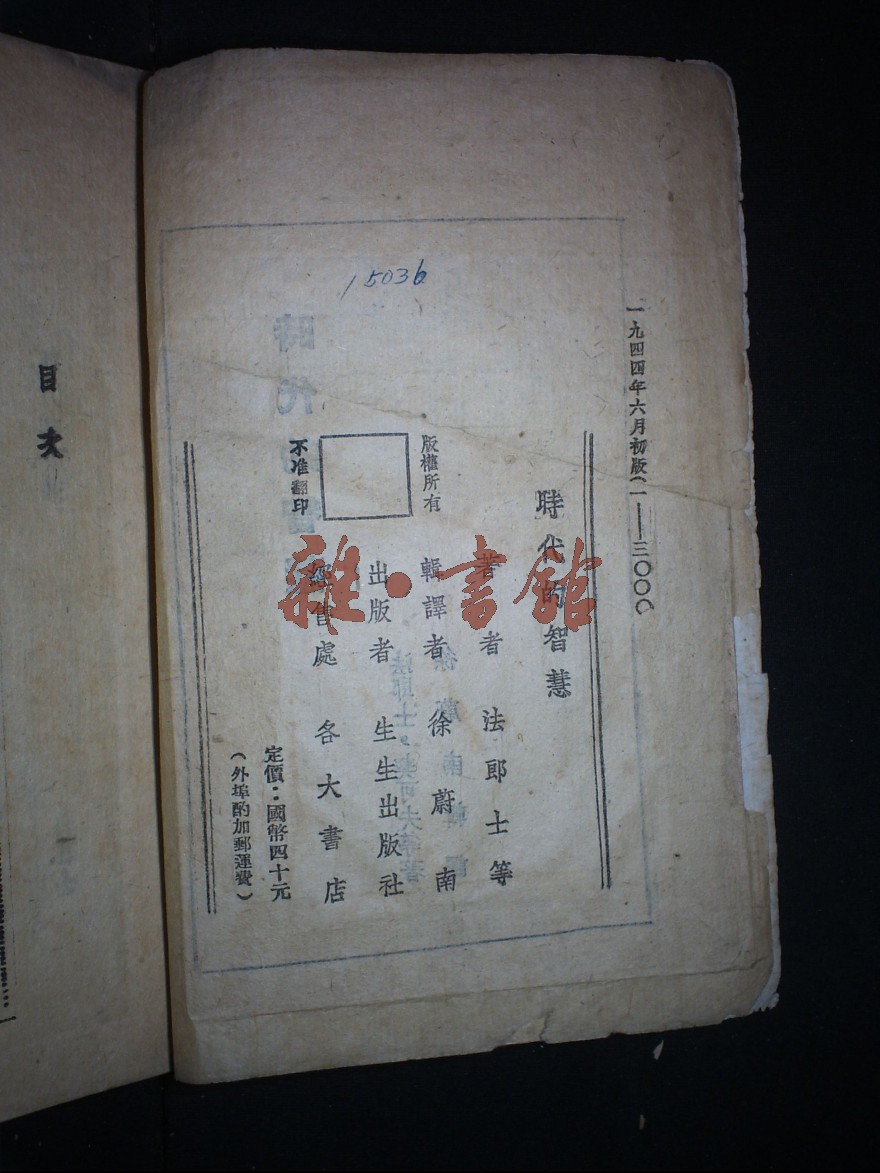 15036
一九四四年六月初版（一——三〇〇〇
時代的智慧
著者 法郎士等
輯譯者 徐蔚南
出版者 生生出版社
經售處 各大書店
版權所有
不准翻印
定價：國幣四十元
（外埠酌加郵運費）
目次
雜·書館